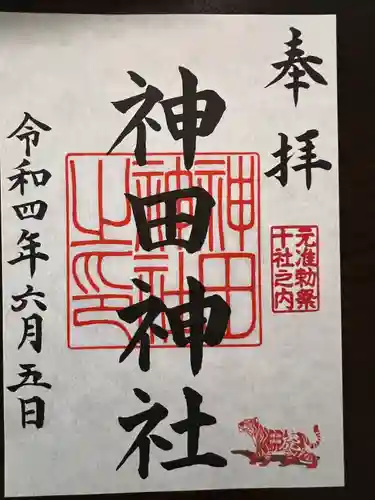 奉拝
元准勅祭
十社之内
神田神社
神田
神社
之印
令和四年六月五日